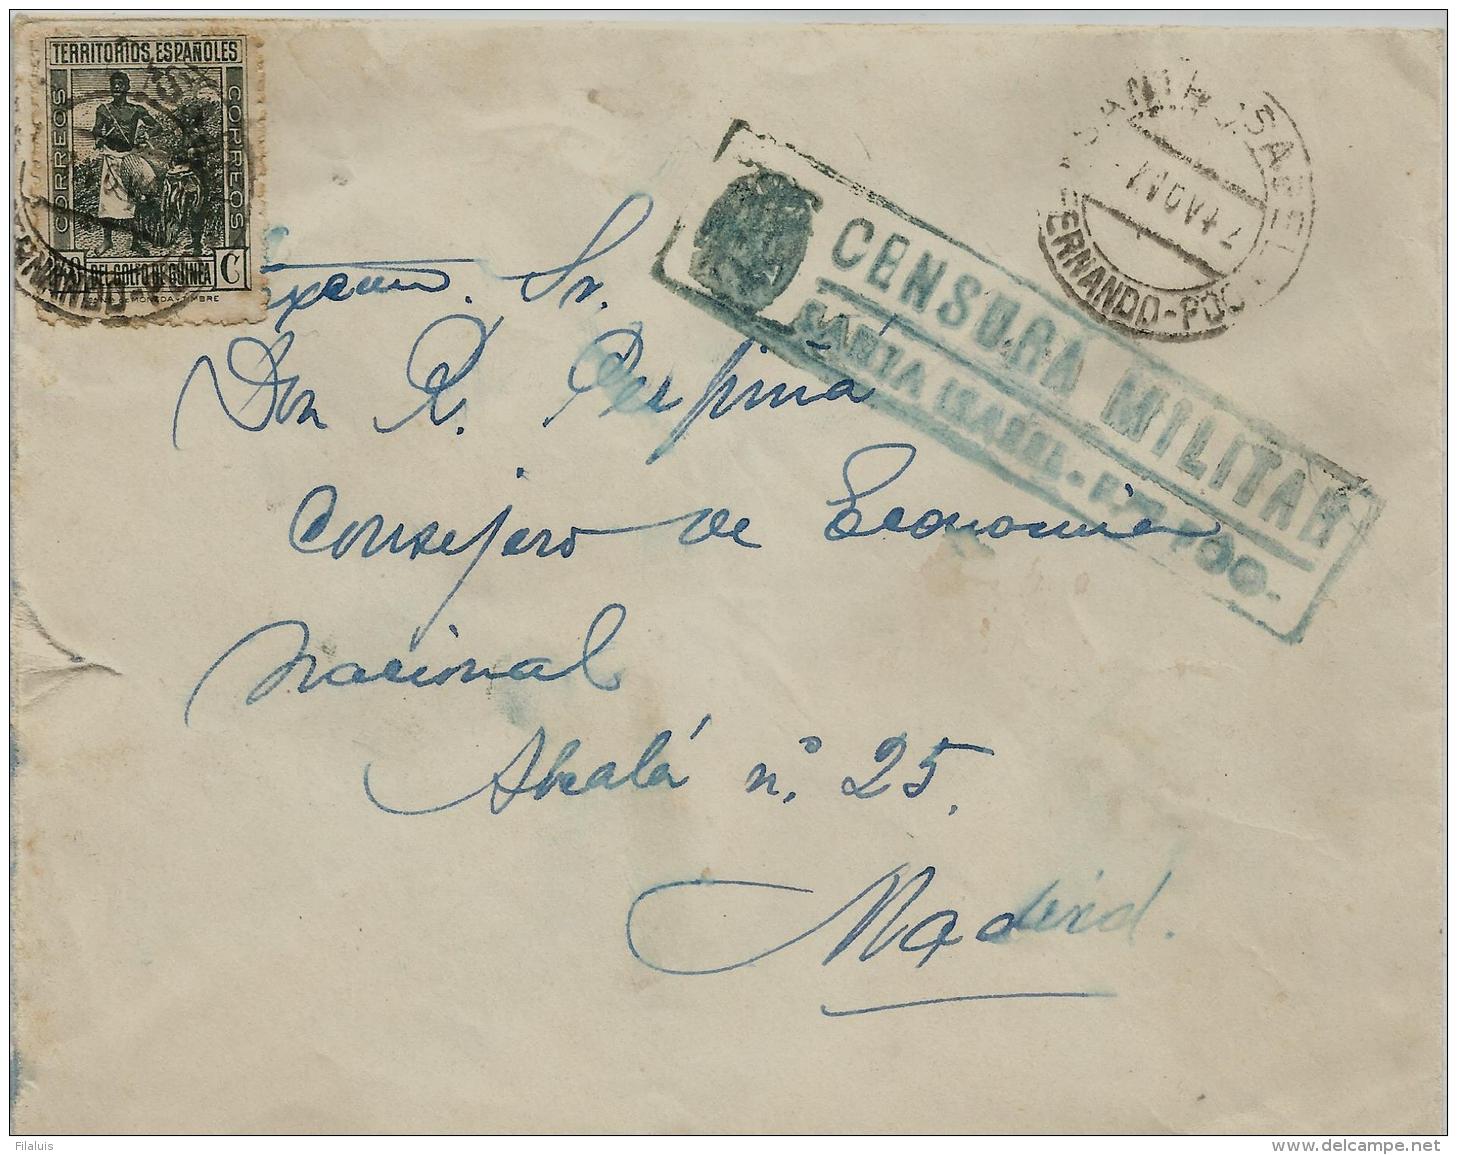 TERRITORIOS ESPAÑOLES
CORREOS
CORREOS
DEL GOLFO DE GUINEA
C
FERNANDO
SANTA ISABEL
FERNANDO-POO
CENSURA MILITAR
SANTA ISABEL - F. POO -
Excmo. Sr.
Don R. Perpiñá
Consejero de Economia
Nacional
Alcalá nº 25.
Madrid.
Filaluis
delcampe.net